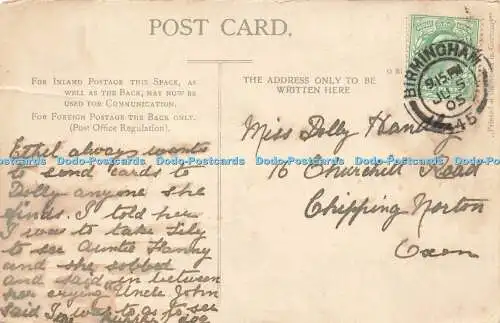 POST CARD.
FOR INLAND POSTAGE THIS SPACE, AS
WELL AS THE BACK, MAY NOW BE
USED FOR COMMUNICATION.
FOR FOREIGN POSTAGE THE BACK ONLY.
(Post Office Regulation).
THE ADDRESS ONLY TO BE
WRITTEN HERE
BIRMINGHAM
9.15 PM
05
45
Ethel always wants
to send cards to
Dolly anyone she
finds. I told her
I was to take Lily
to see Auntie Fanny
and she sobbed
and said in between
her crying Uncle John
said I was to go to see
Miss Dolly Handley
16 Churchill Road
Chipping Norton
Oxon
Dodo-Postcards Dodo-Postcards Dodo-Postcards Dodo-Postcards Dodo-Postcards Dodo-Postcards